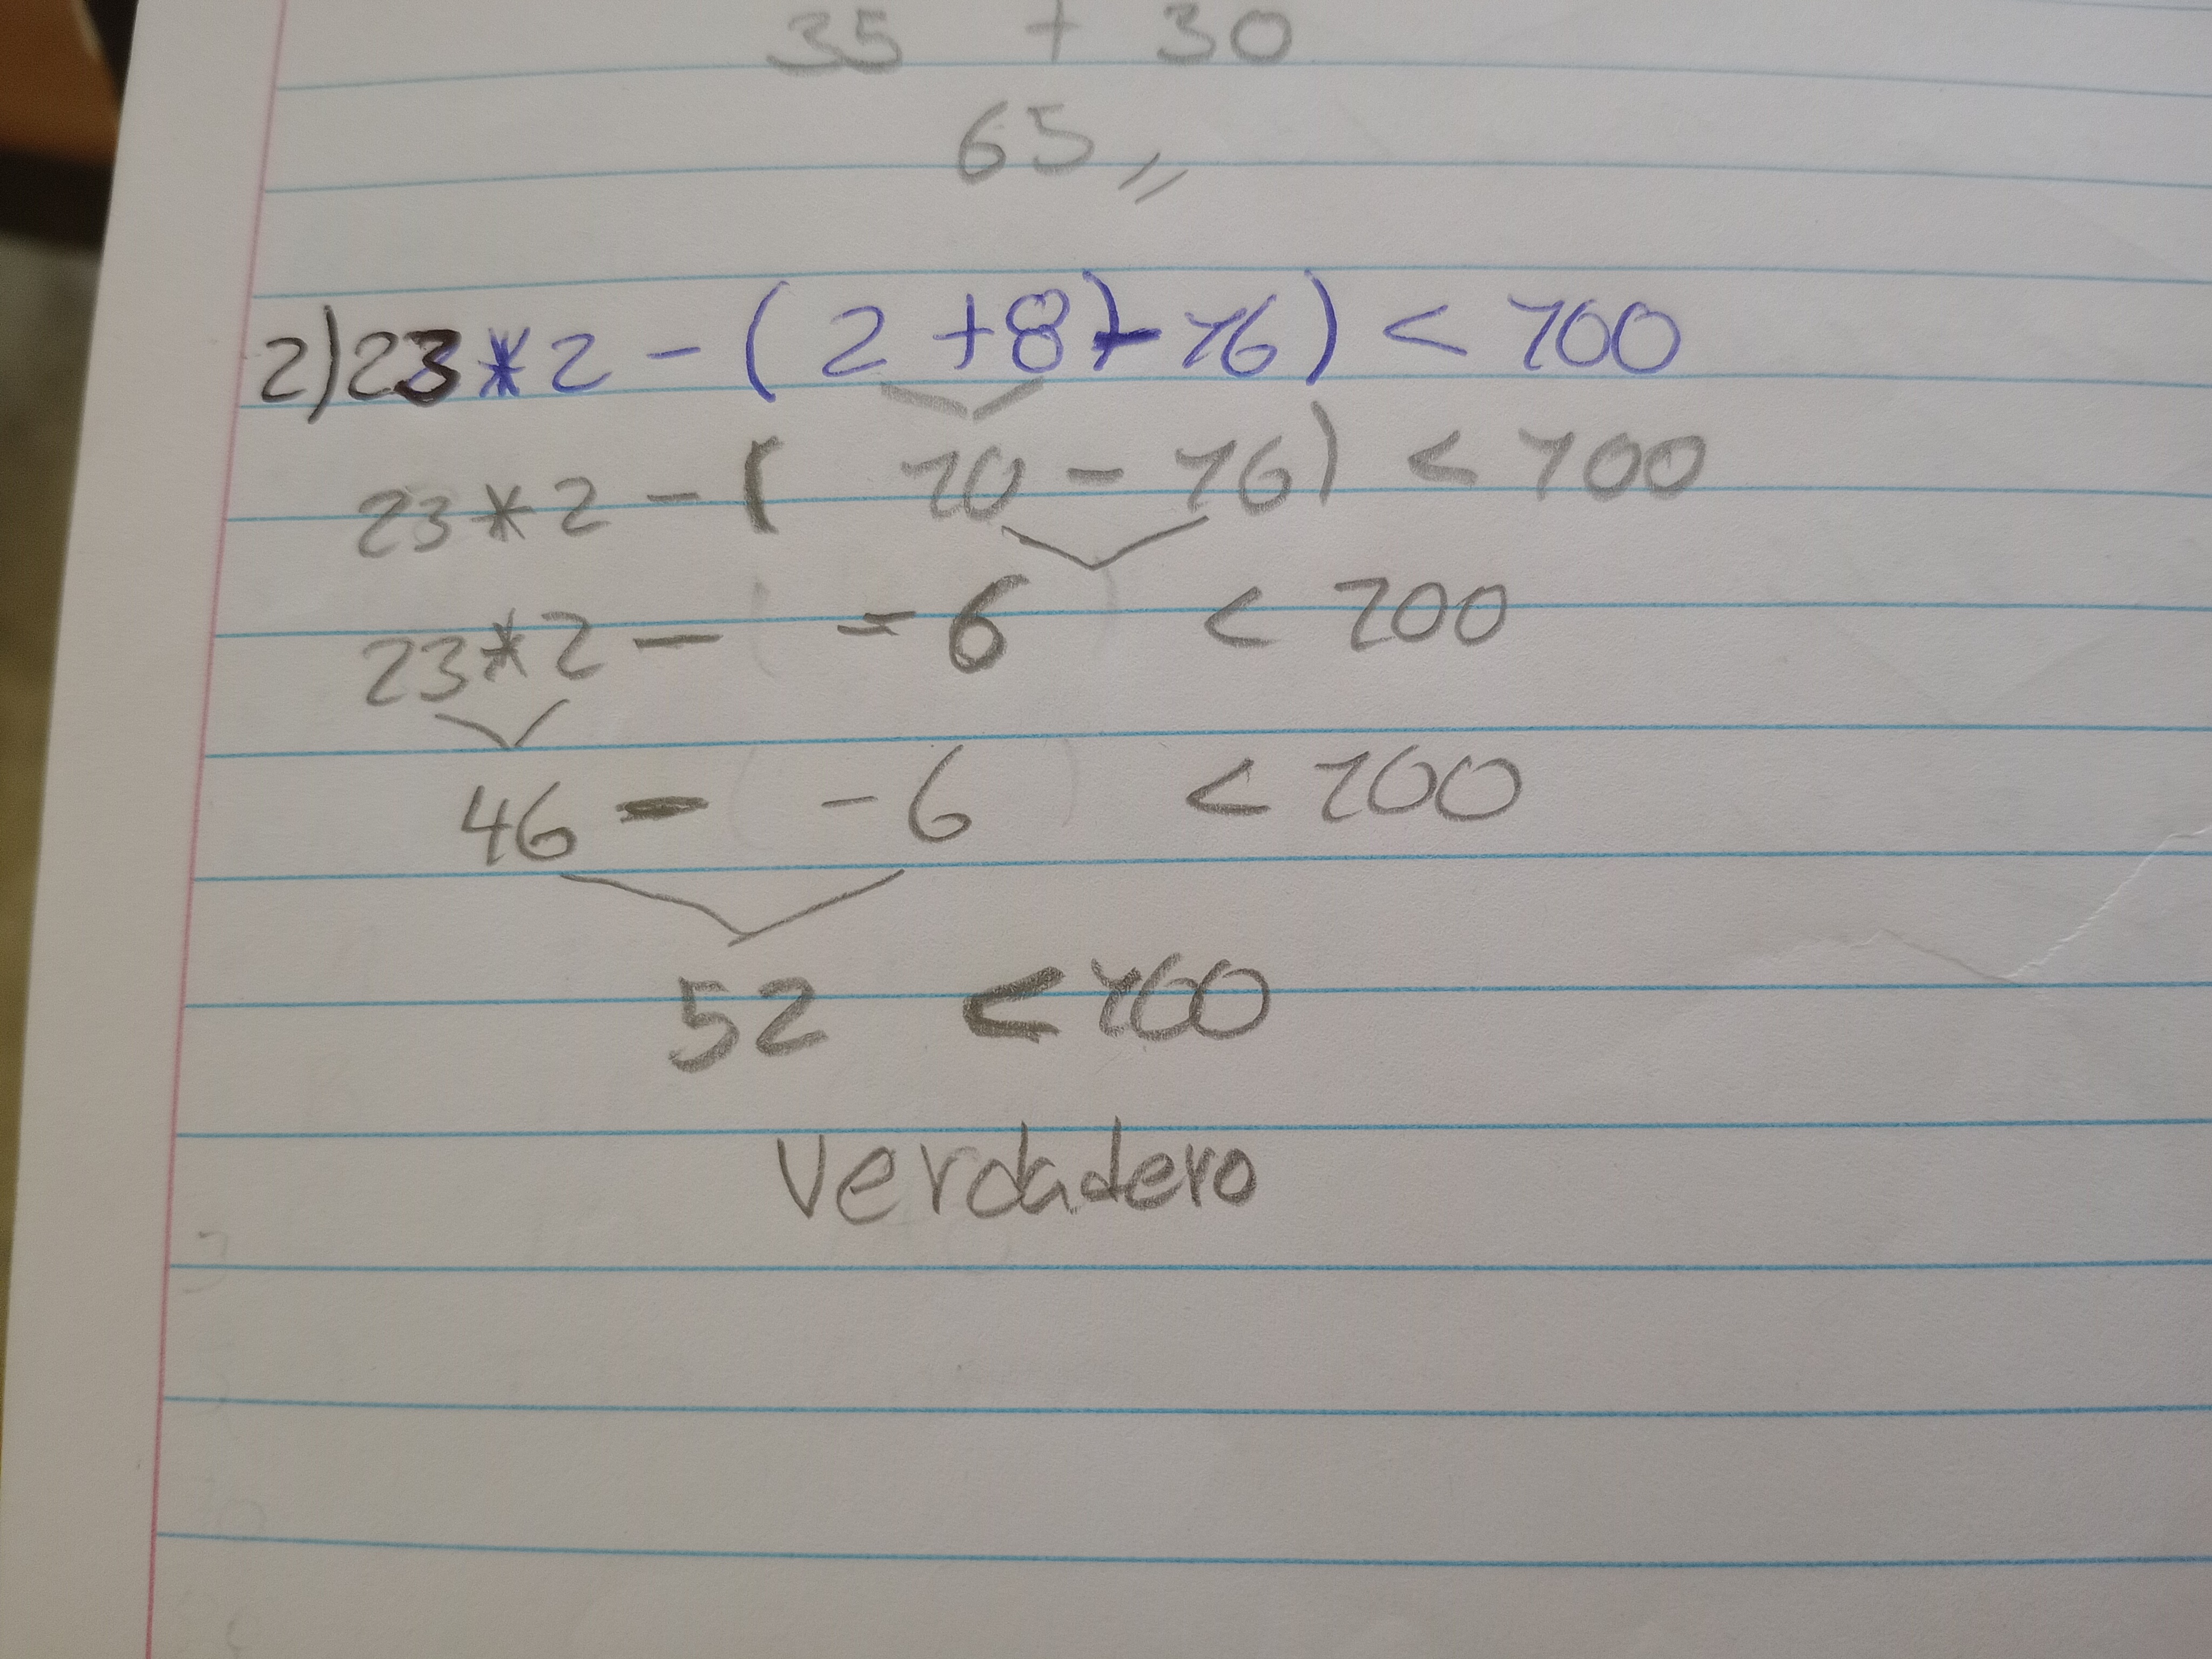 35 + 30
65 //
2) 23 * 2 - ( 2 + 8) - 16) < 100
23 * 2 - ( 10 - 16) < 100
23 * 2 - - 6 < 100
46 - - 6 < 100
52 < 100
Verdadero